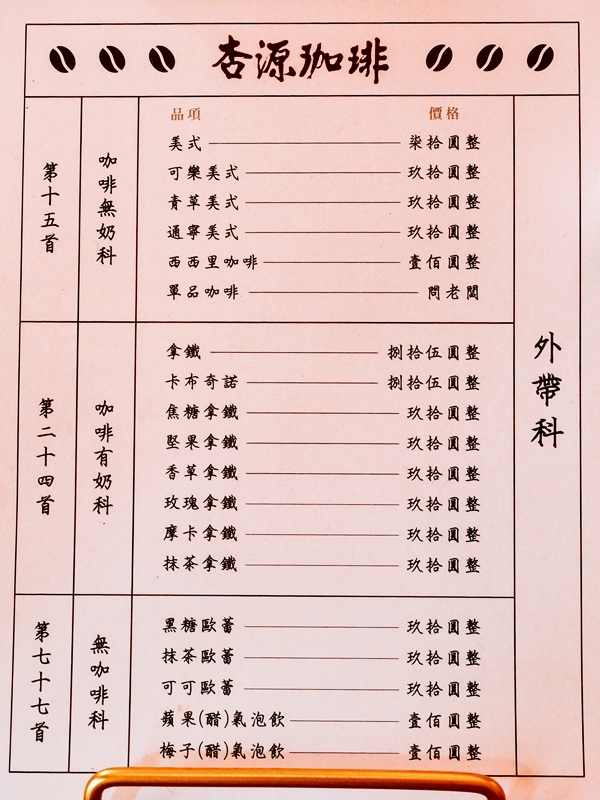 杏源珈琲
品項 價格
外帶科
第十五首
咖啡無奶科
美式 柒拾圓整
可樂美式 玖拾圓整
青草美式 玖拾圓整
通寧美式 玖拾圓整
西西里咖啡 壹佰圓整
單品咖啡 問老闆
第二十四首
咖啡有奶科
拿鐵 捌拾伍圓整
卡布奇諾 捌拾伍圓整
焦糖拿鐵 玖拾圓整
堅果拿鐵 玖拾圓整
香草拿鐵 玖拾圓整
玫瑰拿鐵 玖拾圓整
摩卡拿鐵 玖拾圓整
抹茶拿鐵 玖拾圓整
第七十七首
無咖啡科
黑糖歐蕾 玖拾圓整
抹茶歐蕾 玖拾圓整
可可歐蕾 玖拾圓整
蘋果(醋)氣泡飲 壹佰圓整
梅子(醋)氣泡飲 壹佰圓整